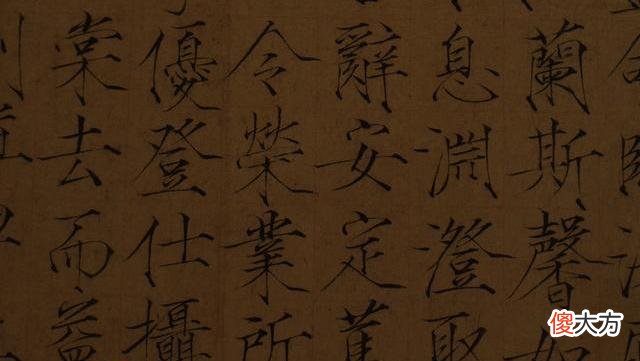 蘭斯馨如
息淵澄取
辭安定
令榮業所
優登仕攝
棠去而益
傻大方